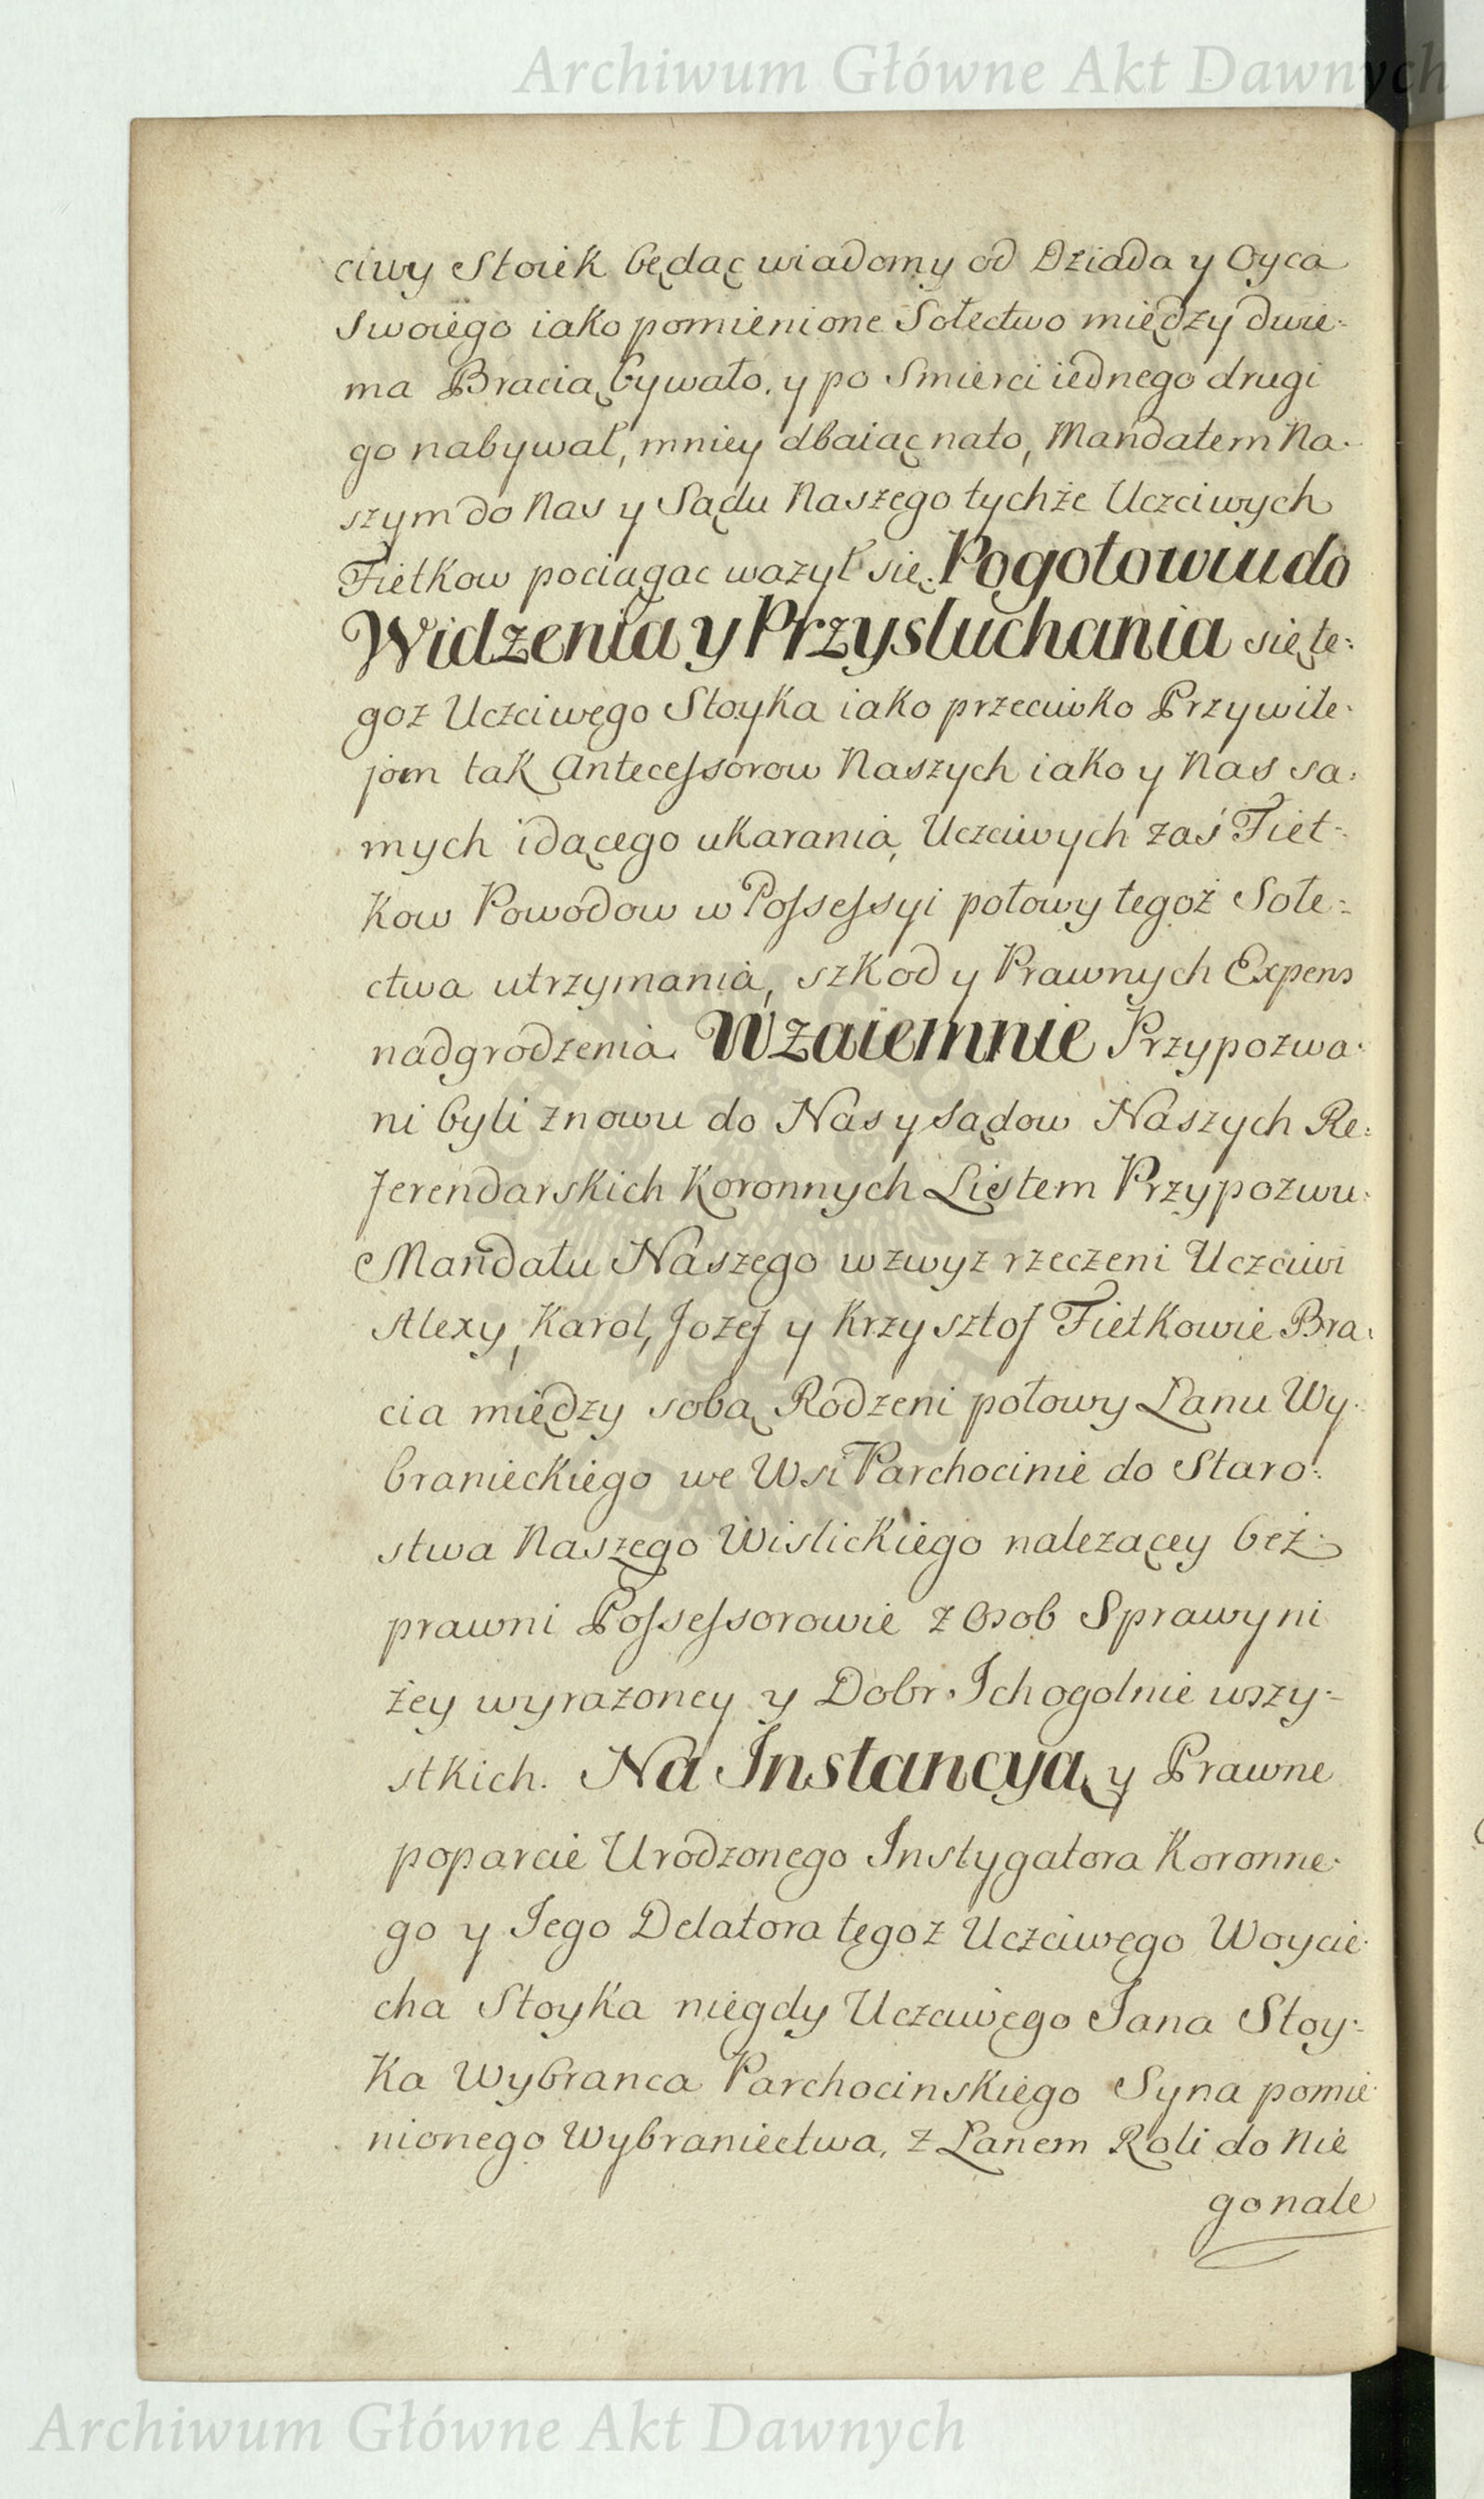 Archiwum Główne Akt Dawnych
ciwy Stoiek będąc wiadomy od Dziada y Oyca
swoiego iako pomienione Sołectwo między dwie-
ma Bracią bywało. y po Smierci iednego drugi
go nabywał, mniey dbaiąc nato, Mandatem Na-
szym do Nas y Sądu Naszego tychże Uczciwych
Fietkow pociągac ważył się. Pogotowiu do
Widzenia y Przysluchania się te:
goz Uczciwego Stoyka iako przeciwko Przywile-
jom tak Antecessorow Naszych iako y Nas sa:
mych idącego ukarania, Uczciwych zaś Fiet-
kow Powodow w Possessyi połowy tegoż Sołe:
ctwa utrzymania, szkod y Prawnych Expens
nadgrodzenia. Wzaiemnie Przypozwa-
ni byli znowu do Nas y Sądow Naszych Re:
ferendarskich Koronnych Listem Przypozwu:
Mandatu Naszego wzwyz rzeczeni Uczciwi
Alexy, Karol, Jozef y Krzysztof Fietkowie Bra:
cia między sobą Rodzeni połowy Lanu Wy-
branieckiego we Wsi Parchocinie do Staro:
stwa Naszego Wislickiego nalezącey beż-
prawni Possessorowie z Osob Sprawy ni
żey wyrażoney y Dobr Ich ogolnie wszy-
stkich. Na Instancyą y Prawne
poparcie Urodzonego Instygatora Koronne-
go y Iego Delatora tegoz Uczciwego Woycie-
cha Stoyka niegdy Uczciwego Jana Stoy-
ka Wybranca Parchocinskiego Syna pomie-
nionego Wybraniectwa, z Lanem Roli do Nie
go nale
Archiwum Główne Akt Dawnych